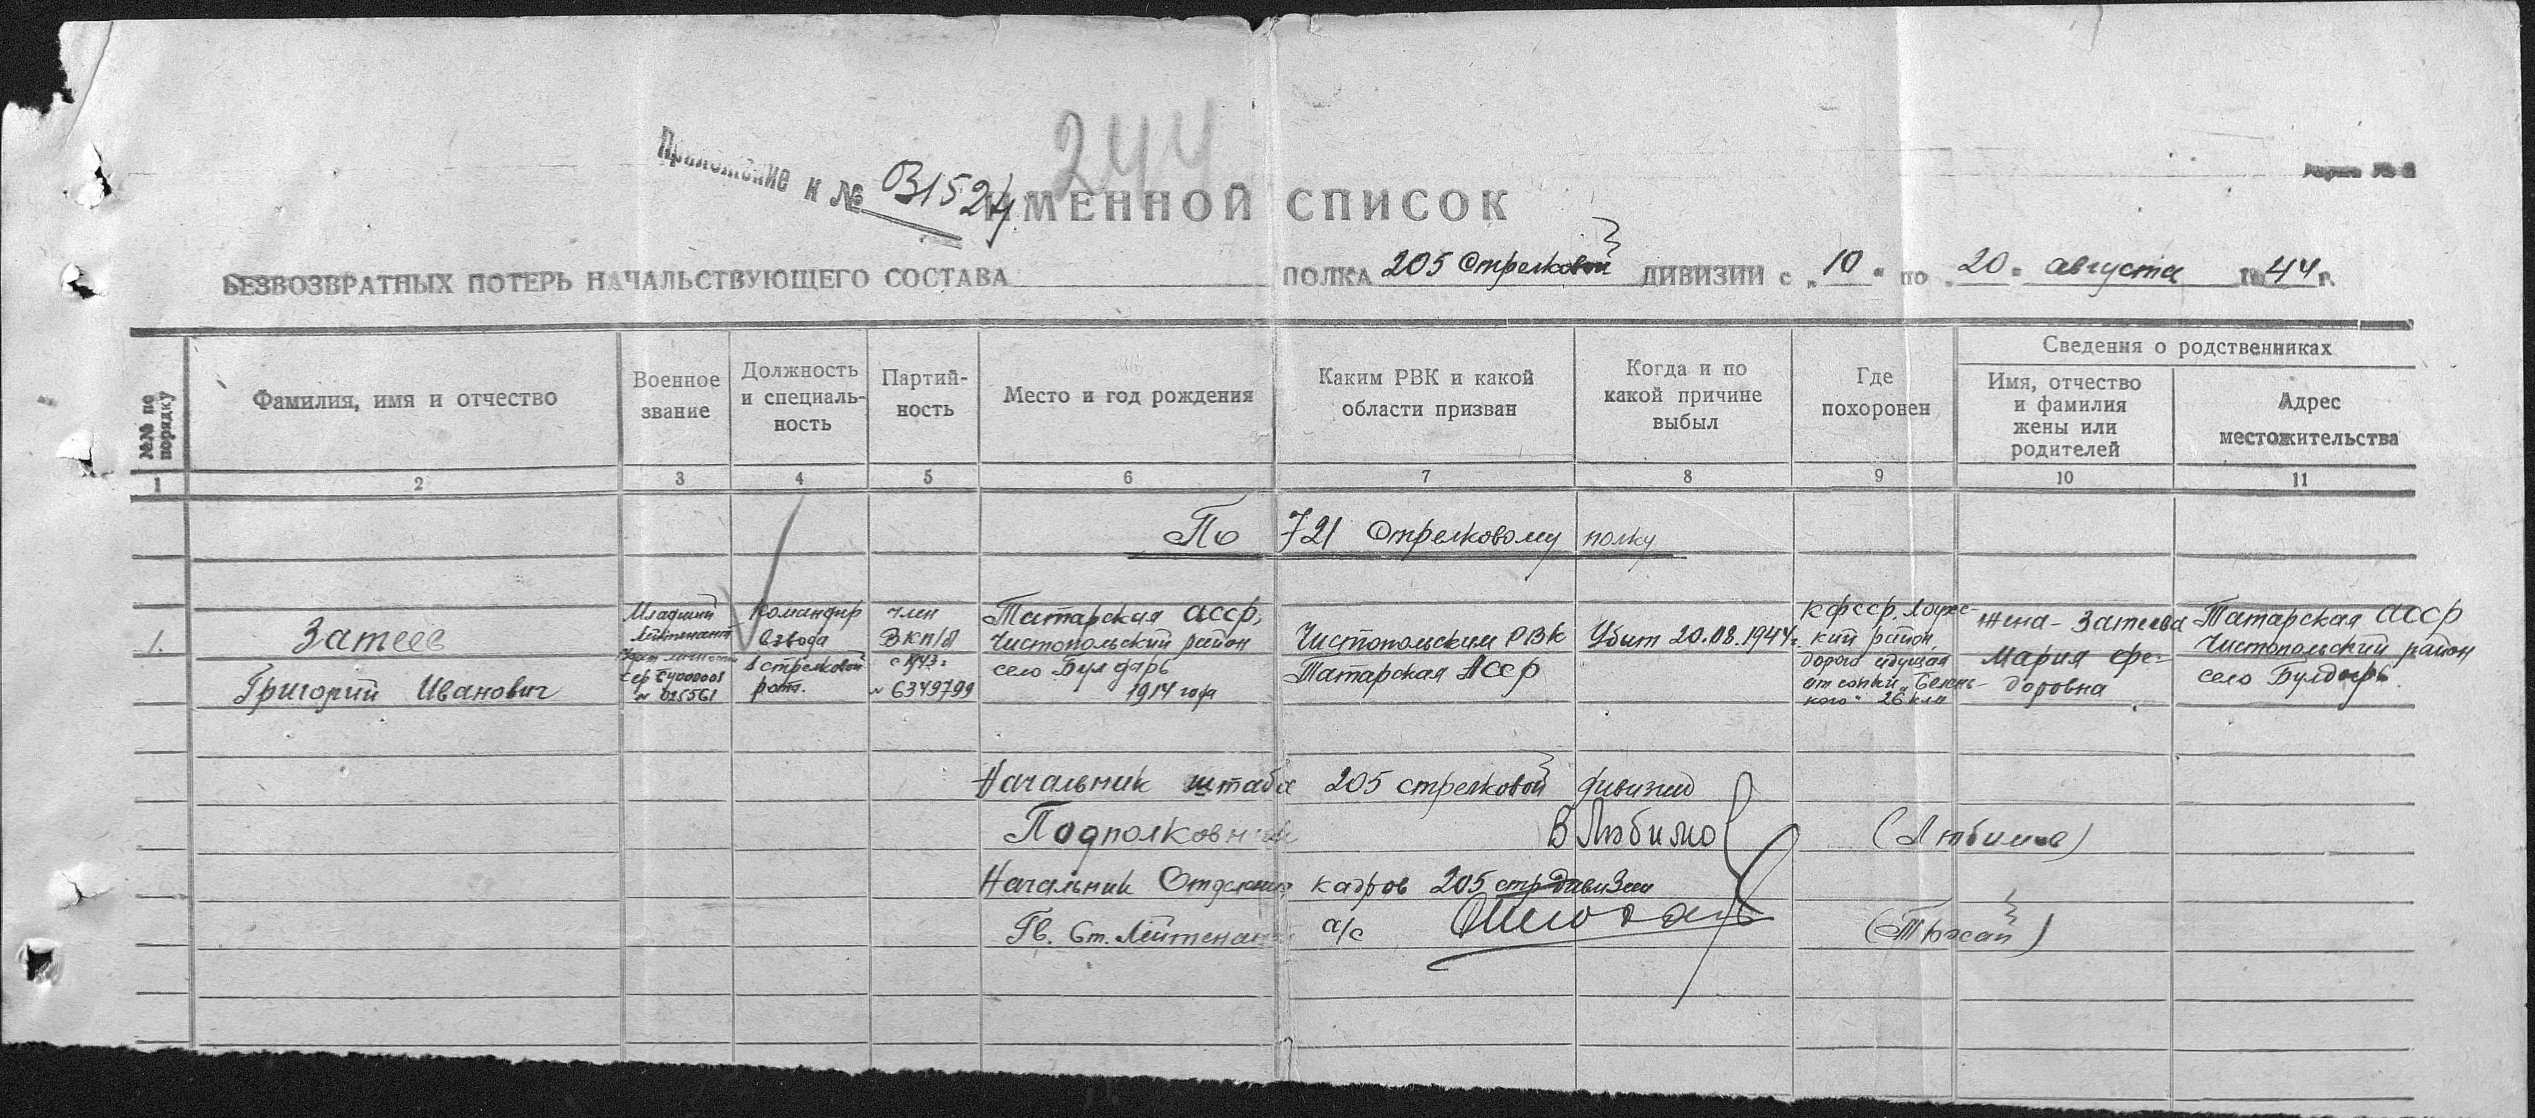 244
Приложение к № 031524
ИМЕННОЙ СПИСОК
Форма № 2
БЕЗВОЗВРАТНЫХ ПОТЕРЬ НАЧАЛЬСТВУЮЩЕГО СОСТАВА ПОЛКА 205 Стрелковой ДИВИЗИИ с „10“ по „20“ августа 1944 г.
№№ по порядку
Фамилия, имя и отчество
Военное звание
Должность и специаль-ность
Партий-ность
Место и год рождения
Каким РВК и какой области призван
Когда и по какой причине выбыл
Где похоронен
Сведения о родственниках
Имя, отчество и фамилия жены или родителей
Адрес местожительства
1 2 3 4 5 6 7 8 9 10 11
По 721 Стрелковому полку
1.
Затеев
Григорий Иванович
Младший
Лейтенант
№ 025561
Командир
взвода
1 стрелковой
роты.
член
ВКП/б
с 1943 г
№ 6349799
Татарская АССР,
Чистопольский район
село Булдырь
1914 года
Чистопольским РВК
Татарская АССР
Убит 20.08.1944г.
КФССР. Лоухс-
кий район,
дорога идущая
от сопки „Белень-
кого“ 26 клм
жена - Затеева
Мария Фе-
доровна
Татарская АССР
Чистопольский район
село Булдырь.
Начальник штаба 205 стрелковой дивизии
Подполковник В Любимов (Любимов)
Начальник Отделения кадров 205 стр дивизии
Гв. Ст. Лейтенант а/с